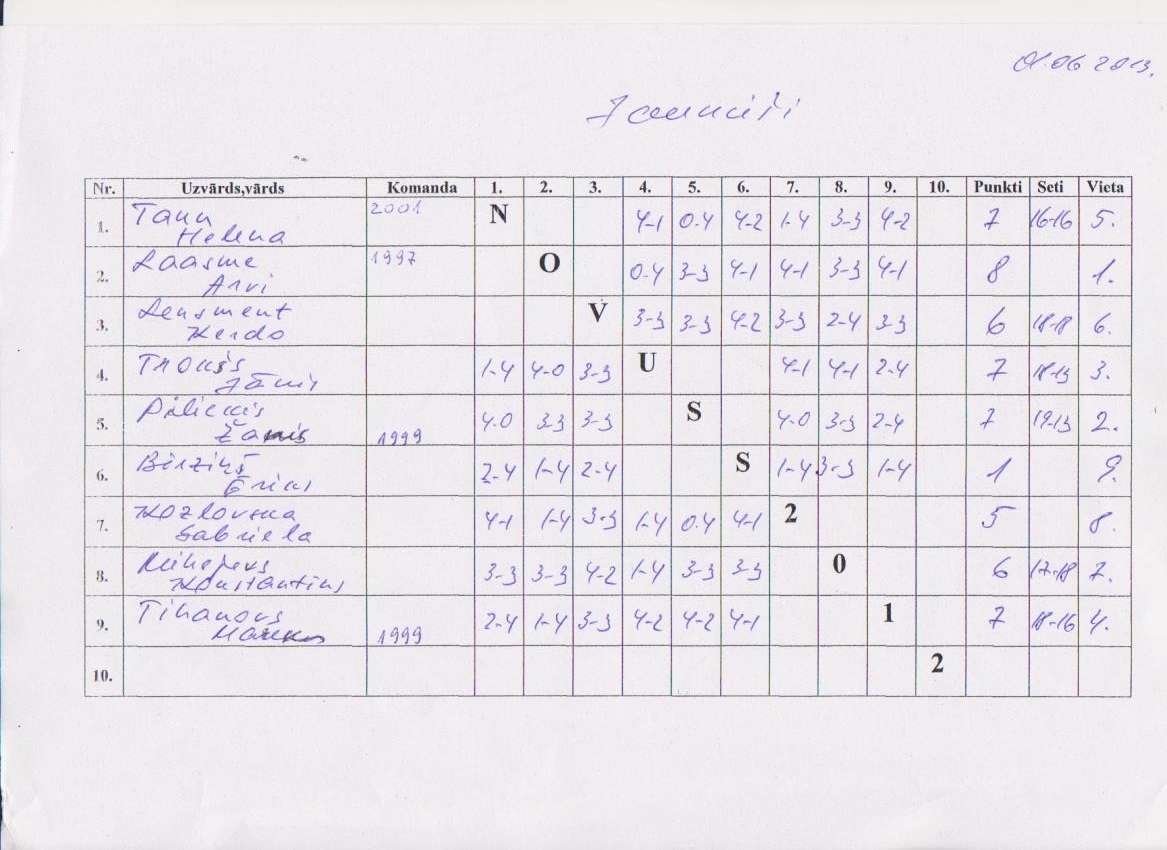 01.06 2013.
Jaunieši
Nr. Uzvārds,vārds Komanda 1. 2. 3. 4. 5. 6. 7. 8. 9. 10. Punkti Seti Vieta
1. Tann Helena 2001 N 4-1 0-4 4-2 1-4 3-3 4-2 7 16-16 5.
2. Laasme Arvi 1997 O 0-4 3-3 4-1 4-1 3-3 4-1 8 1.
3. Lensment Kerdo V 3-3 3-3 4-2 3-3 2-4 3-3 6 18-18 6.
4. Trokšs Jānis 1-4 4-0 3-3 U 4-1 4-1 2-4 7 18-13 3.
5. Pīlicuis Žanis 1999 4-0 3-3 3-3 S 4-0 3-3 2-4 7 19-13 2.
6. Bērziņš Ēriks 2-4 1-4 2-4 S 1-4 3-3 1-4 1 9.
7. Kozlovska Gabriela 4-1 1-4 3-3 1-4 0-4 4-1 2 5 8.
8. Mihejevs Konstantins 3-3 3-3 4-2 1-4 3-3 3-3 0 6 17-18 7.
9. Tihanovs Markus 1999 2-4 1-4 3-3 4-2 4-2 4-1 1 7 18-16 4.
10. 2